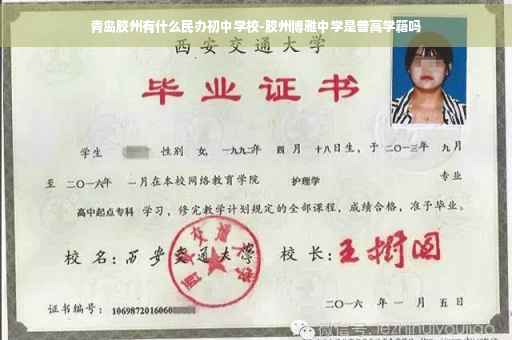 青岛胶州有什么民办初中学校-胶州博雅中学是普高学籍吗
西安交通大学
毕业证书
学生 性别 女, 一九九二年 四 月 十八日生, 于 二〇一三年 九月
至 二〇一六年 一月在本校网络教育学院 护理学 专业
高中起点专科 学习, 修完教学计划规定的全部课程, 成绩合格, 准予毕业。
校 名: 西安交通大学 校 长: 王树国
西安交通大学
证书编号: 1069872016060
二〇一六 年 一 月 五 日
微信号: jezhinuiyoujiao